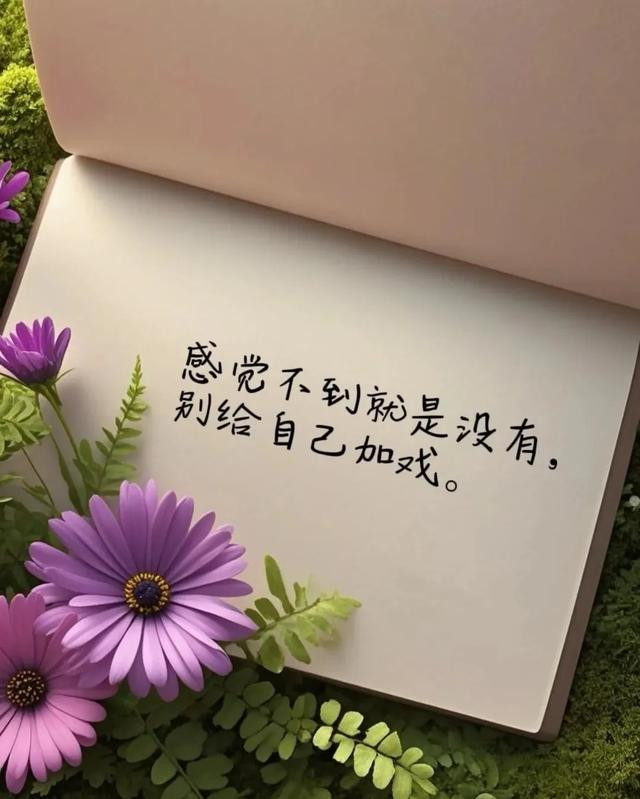 感觉不到就是没有，
别给自己加戏。